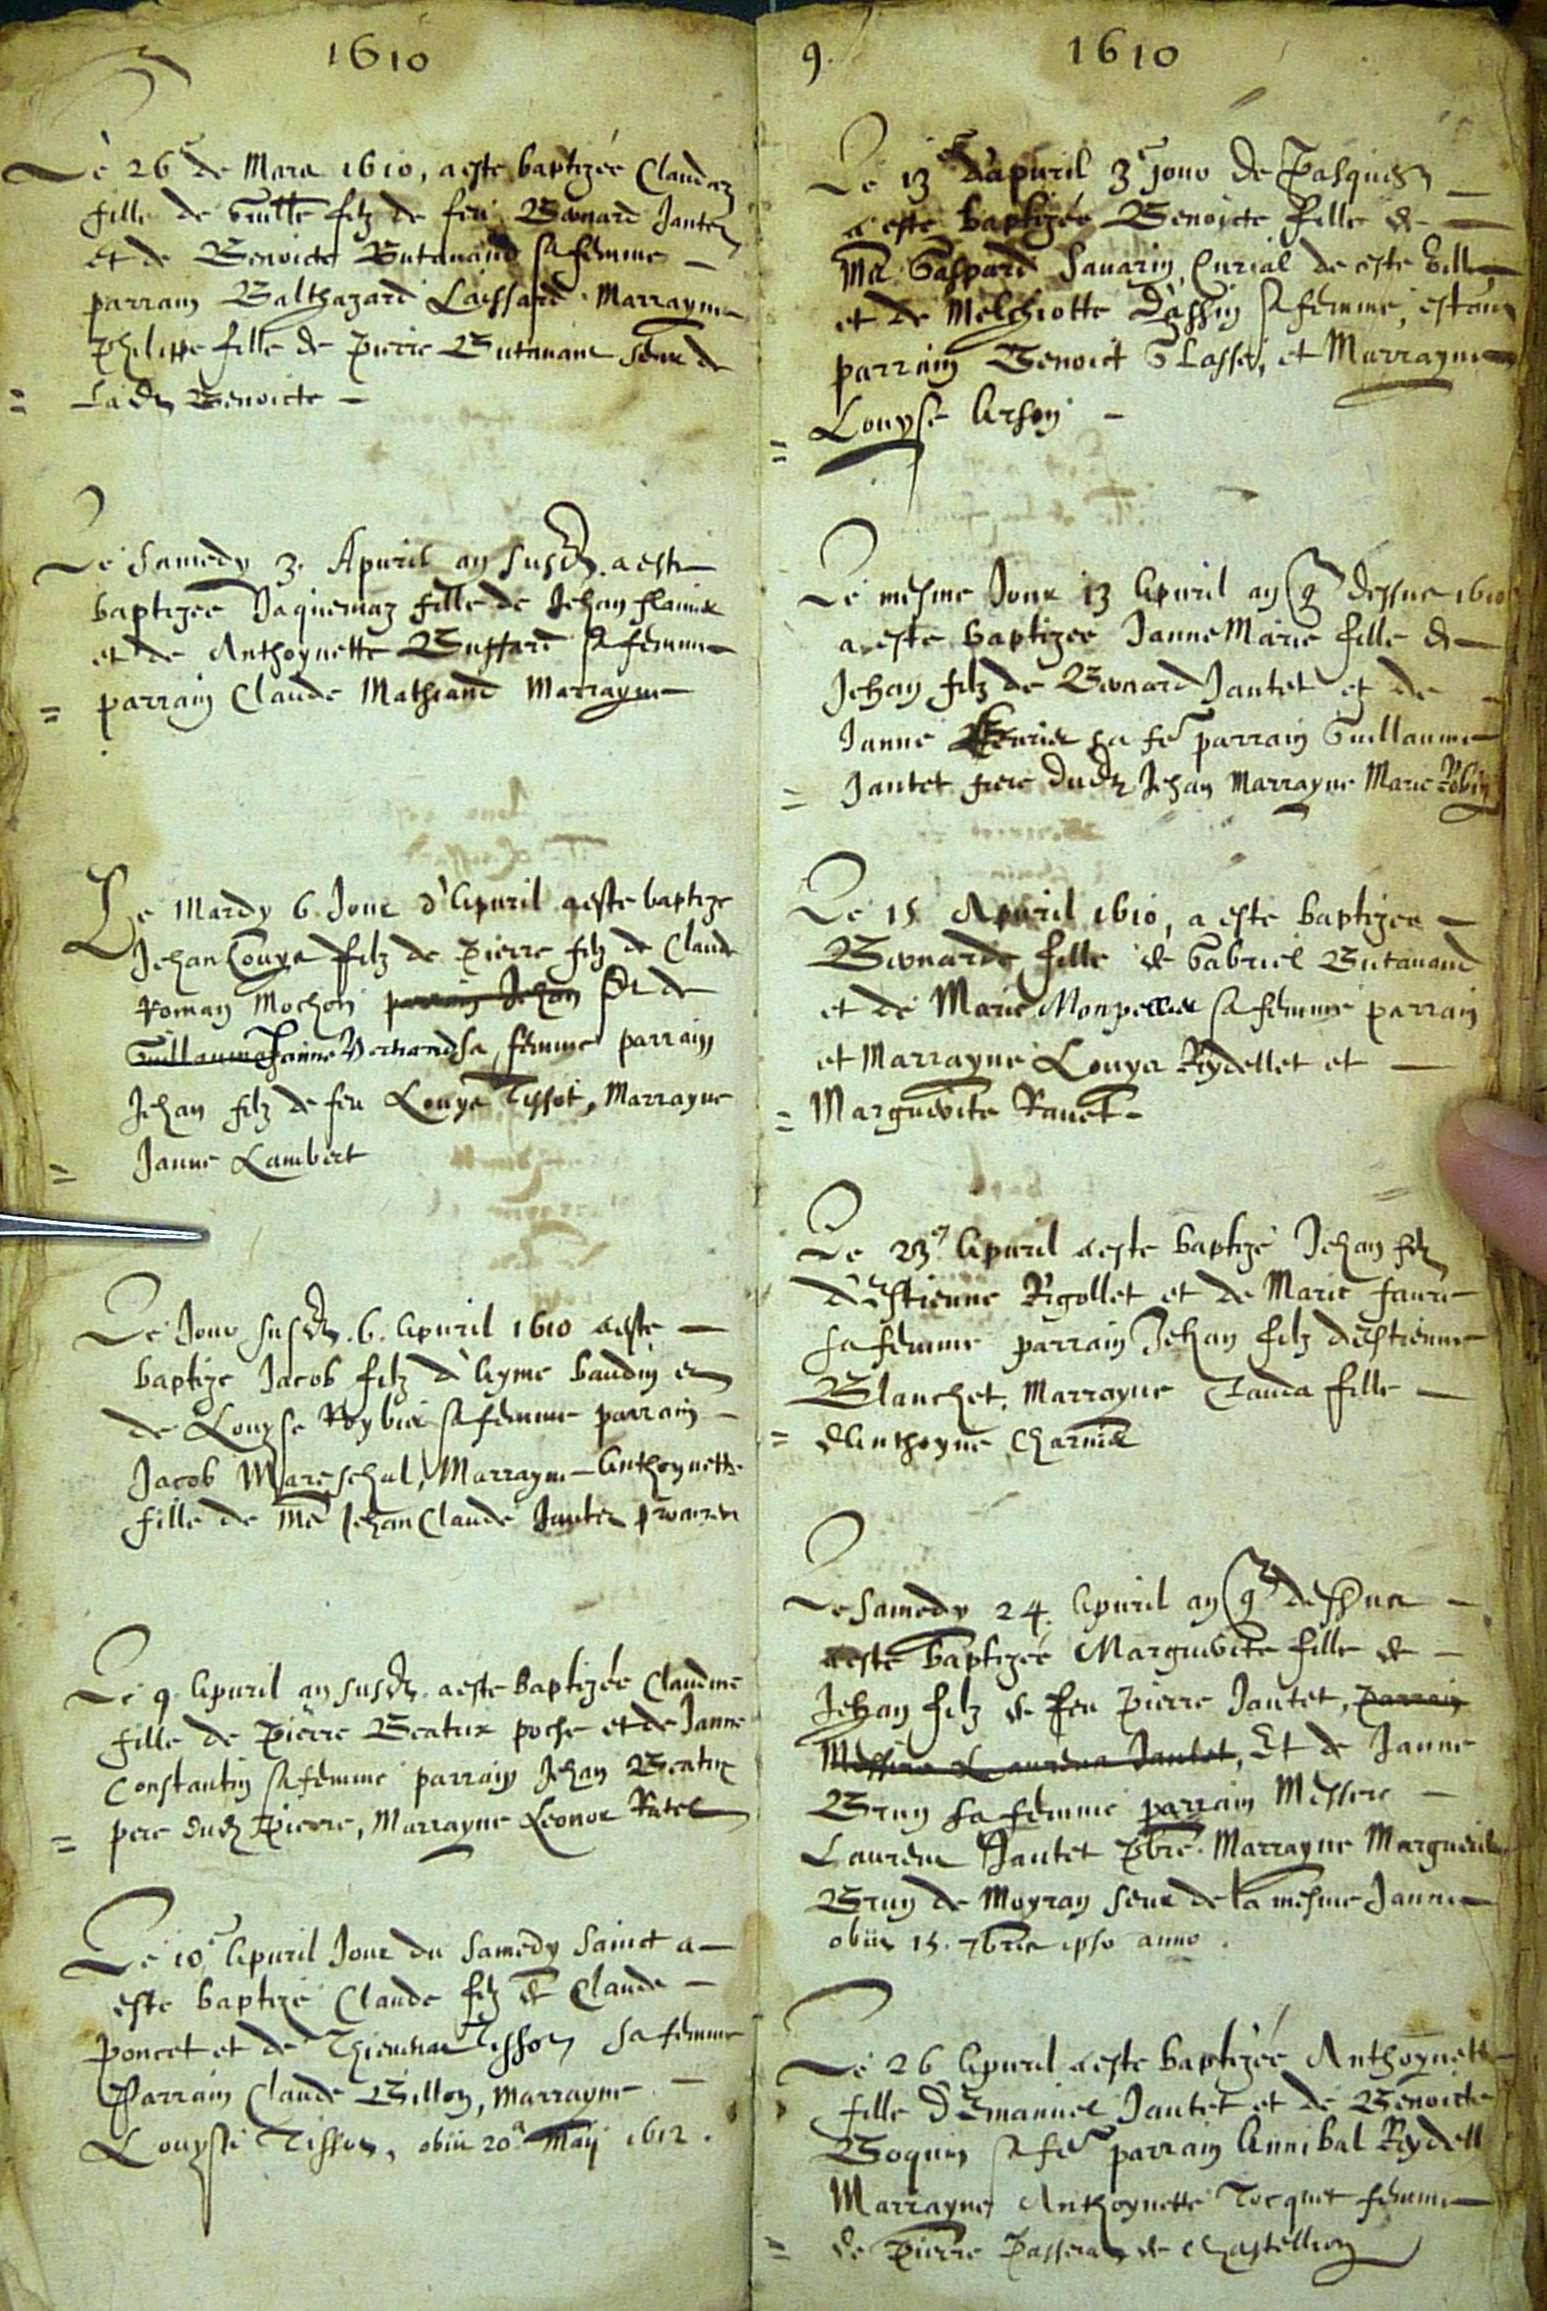 1610
Le 26e de Mars 1610, a este baptizée Claudaz
fille de Guille filz de feu Bernard Jantet
et de Benoicte Butavand sa femme
parrain Balthazard Laissard Marrayne
Philippe fille de Pierre Butavant seur de
ladt Benoicte
Le Samedy 3. Apvril an susdt. a este
baptizee Jaquemaz fille de Jehan
et de Anthoynette Buffard sa femme
parrain Claude Mathiand Marrayne
Le Mardy 6. Jour d'Apvril a este baptize
Jehan Louys filz de Pierre filz de Claude
Roman Mochon parrain Jehan Et de
Guillauma Janne sa femme parrain
Jehan filz de feu Louys Tissot, Marrayne
Janne Lambert
Le Jour susdt. 6. Apvril 1610 a este
baptize Jacob filz d'Ayme baudin et
de Louyse sa femme parrain
Jacob Mareschal, Marrayne Anthoynette
fille de Me Jehan Claude Jantet
Le 9. Apvril an susdt. a este baptizée Claudine
fille de Pierre Beatrix poche et de Janne
Constantin sa femme parrain Jehan Beatrix
pere dudt Pierre, Marrayne Leonor
Le 10e Apvril Jour du Samedy Sainct a
este baptizé Claude filz de Claude
Poncet et de Thievenaz Tissot sa femme
Parrain Claude Billon, Marrayne
Louyse Tissot, obiit 20a Maij 1612.
9.
1610
Le 13e d'apvril 3e jour de Pasques
a este baptizée Benoicte fille de
Me Gaspard Savarin, Curial de ceste ville
et de Melchiotte Dassin sa femme, estans
parrain Benoict, et Marrayne
Louyse Arson
Le mesme Jour 13 Apvril an q dessus 1610
a este baptizee Janne Marie fille de
Jehan filz de Bernard Jantet et de
Janne sa fe parrain Guillaume
Jantet frere dudt Jehan Marrayne Marie Robin
Le 15 Apvril 1610, a este baptizee
Bernarde fille de Gabriel Butavand
et de Marie Monpellier sa femme parrain
et Marrayne Louys Reydellet et
Marguerite Ravet
Le 23e Apvril a este baptizé Jehan filz
d'Estienne Rigollet et de Marie Faure
sa femme parrain Jehan filz d'Estienne
Blanchet, Marrayne Clauda fille
d'Anthoyne Charnier
Le Samedy 24. Apvril an q dessus
a este baptizée Marguerite fille de
Jehan filz de feu Pierre Jantet, parrain
Messire Laurens Jantet, Et de Janne
Brun sa femme parrain Messere
Laurens Jantet Pbre. Marrayne Marguerite
Brun de Moyran seur de la mesme Janne
obiit 15. 7bris ipso anno.
Le 26 Apvril a este baptizée Anthoynette
fille d'Emanuel Jantet et de Benoicte
Boquin sa fe parrain Annibal Reydell
Marrayne Anthoynette Tocquet femme
de Pierre Passerat de Chastellion